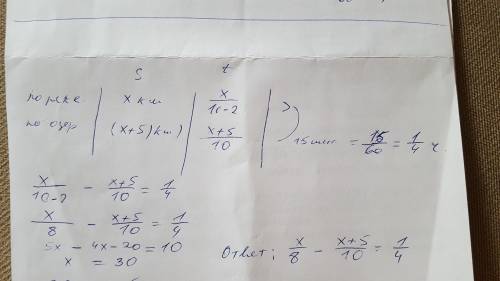 S t
по реке x км x/10-2
по озер (x+5)км) x+5/10 15 мин = 15/60 = 1/4 ч.
x/10-2 - x+5/10 = 1/4
x/8 - x+5/10 = 1/4
5x - 4x - 20 = 10
x = 30
Ответ: x/8 - x+5/10 = 1/4